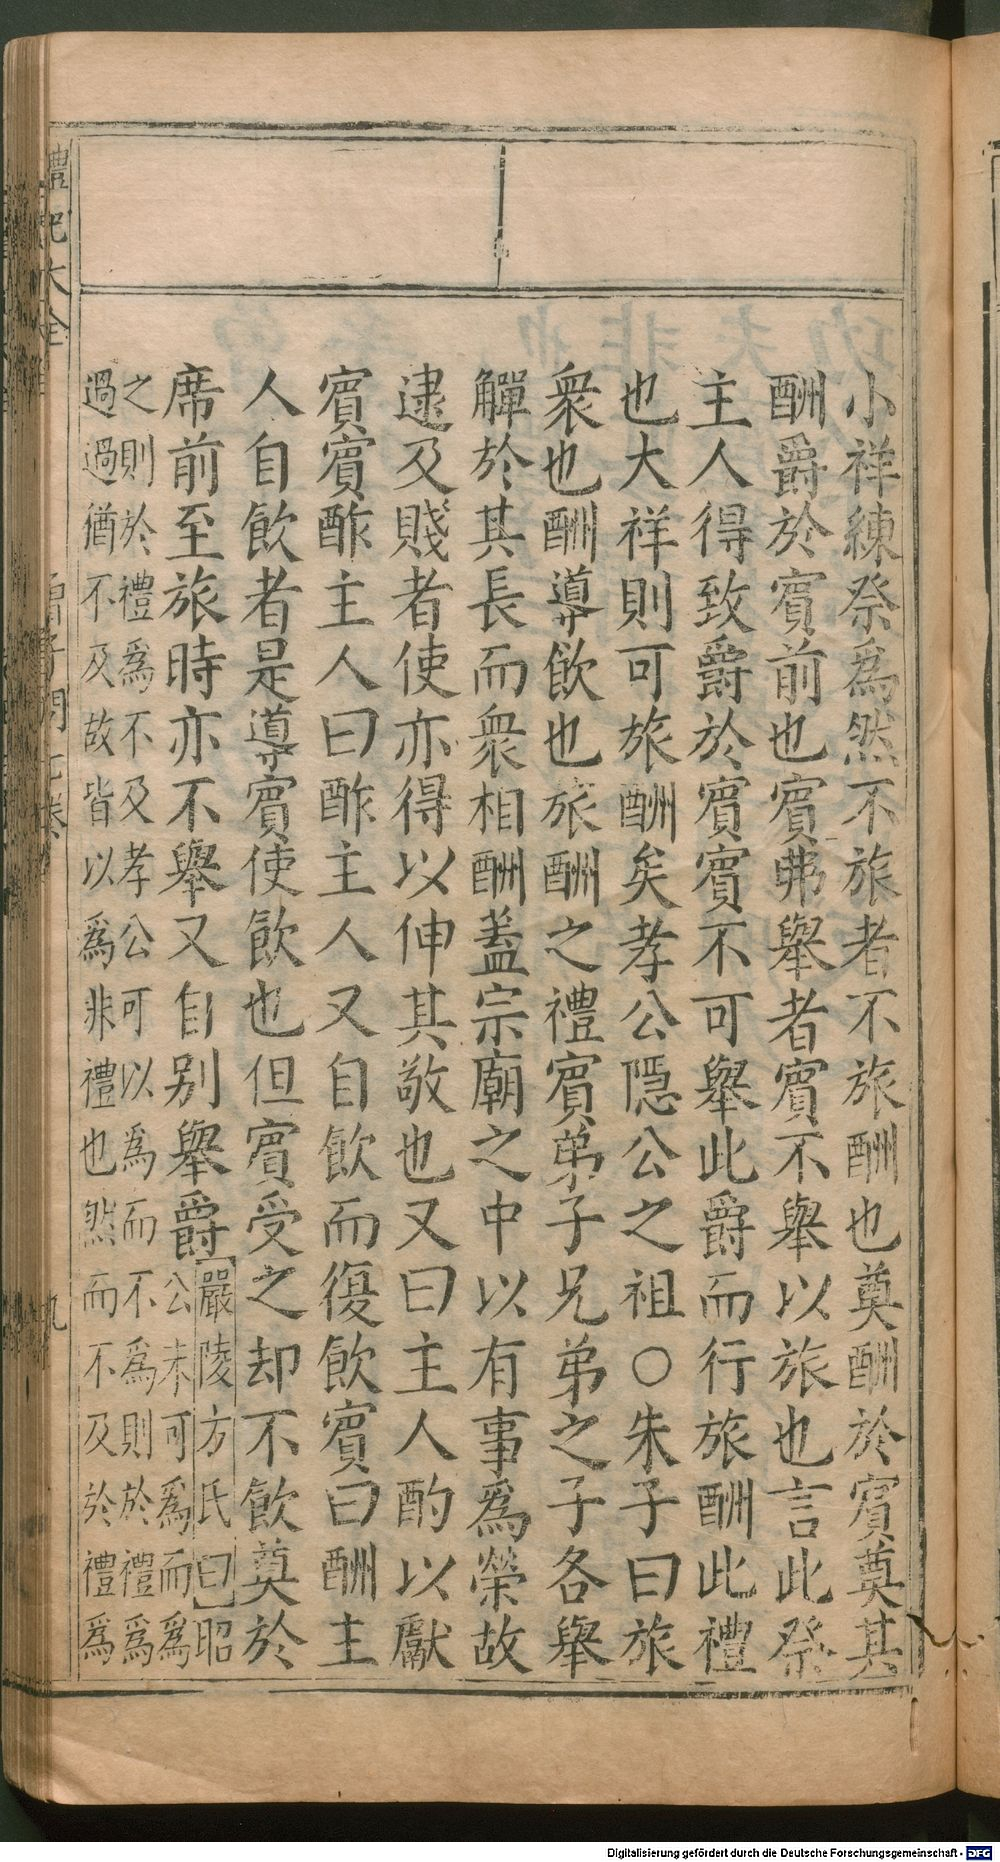 小祥練祭為然不旅者不旅酬也奠酬於賓奠其
酬爵於賓前也賓弗舉者賓不舉以旅也言此祭
主人得致爵於賓賓不可舉此爵而行旅酬此禮
也大祥則可旅酬矣孝公隱公之祖○朱子曰旅
衆也酬導飲也旅酬之禮賓弟子兄弟之子各舉
觶於其長而衆相酬蓋宗廟之中以有事爲榮故
逮及賤者使亦得以伸其敬也又曰主人酌以獻
賓賓酢主人曰酢主人又自飲而復飲賓曰酬主
人自飲者是導賓使飲也但賓受之却不飲奠於
席前至旅時亦不舉又自别舉爵
嚴陵方氏曰昭
公未可爲而爲
之則於禮爲不及孝公可以爲而不爲則於禮爲
過過猶不及故皆以爲非禮也然而不及於禮爲
禮記大全
曾子問七卷
九
Digitalisierung gefördert durch die Deutsche Forschungsgemeinschaft - DFG